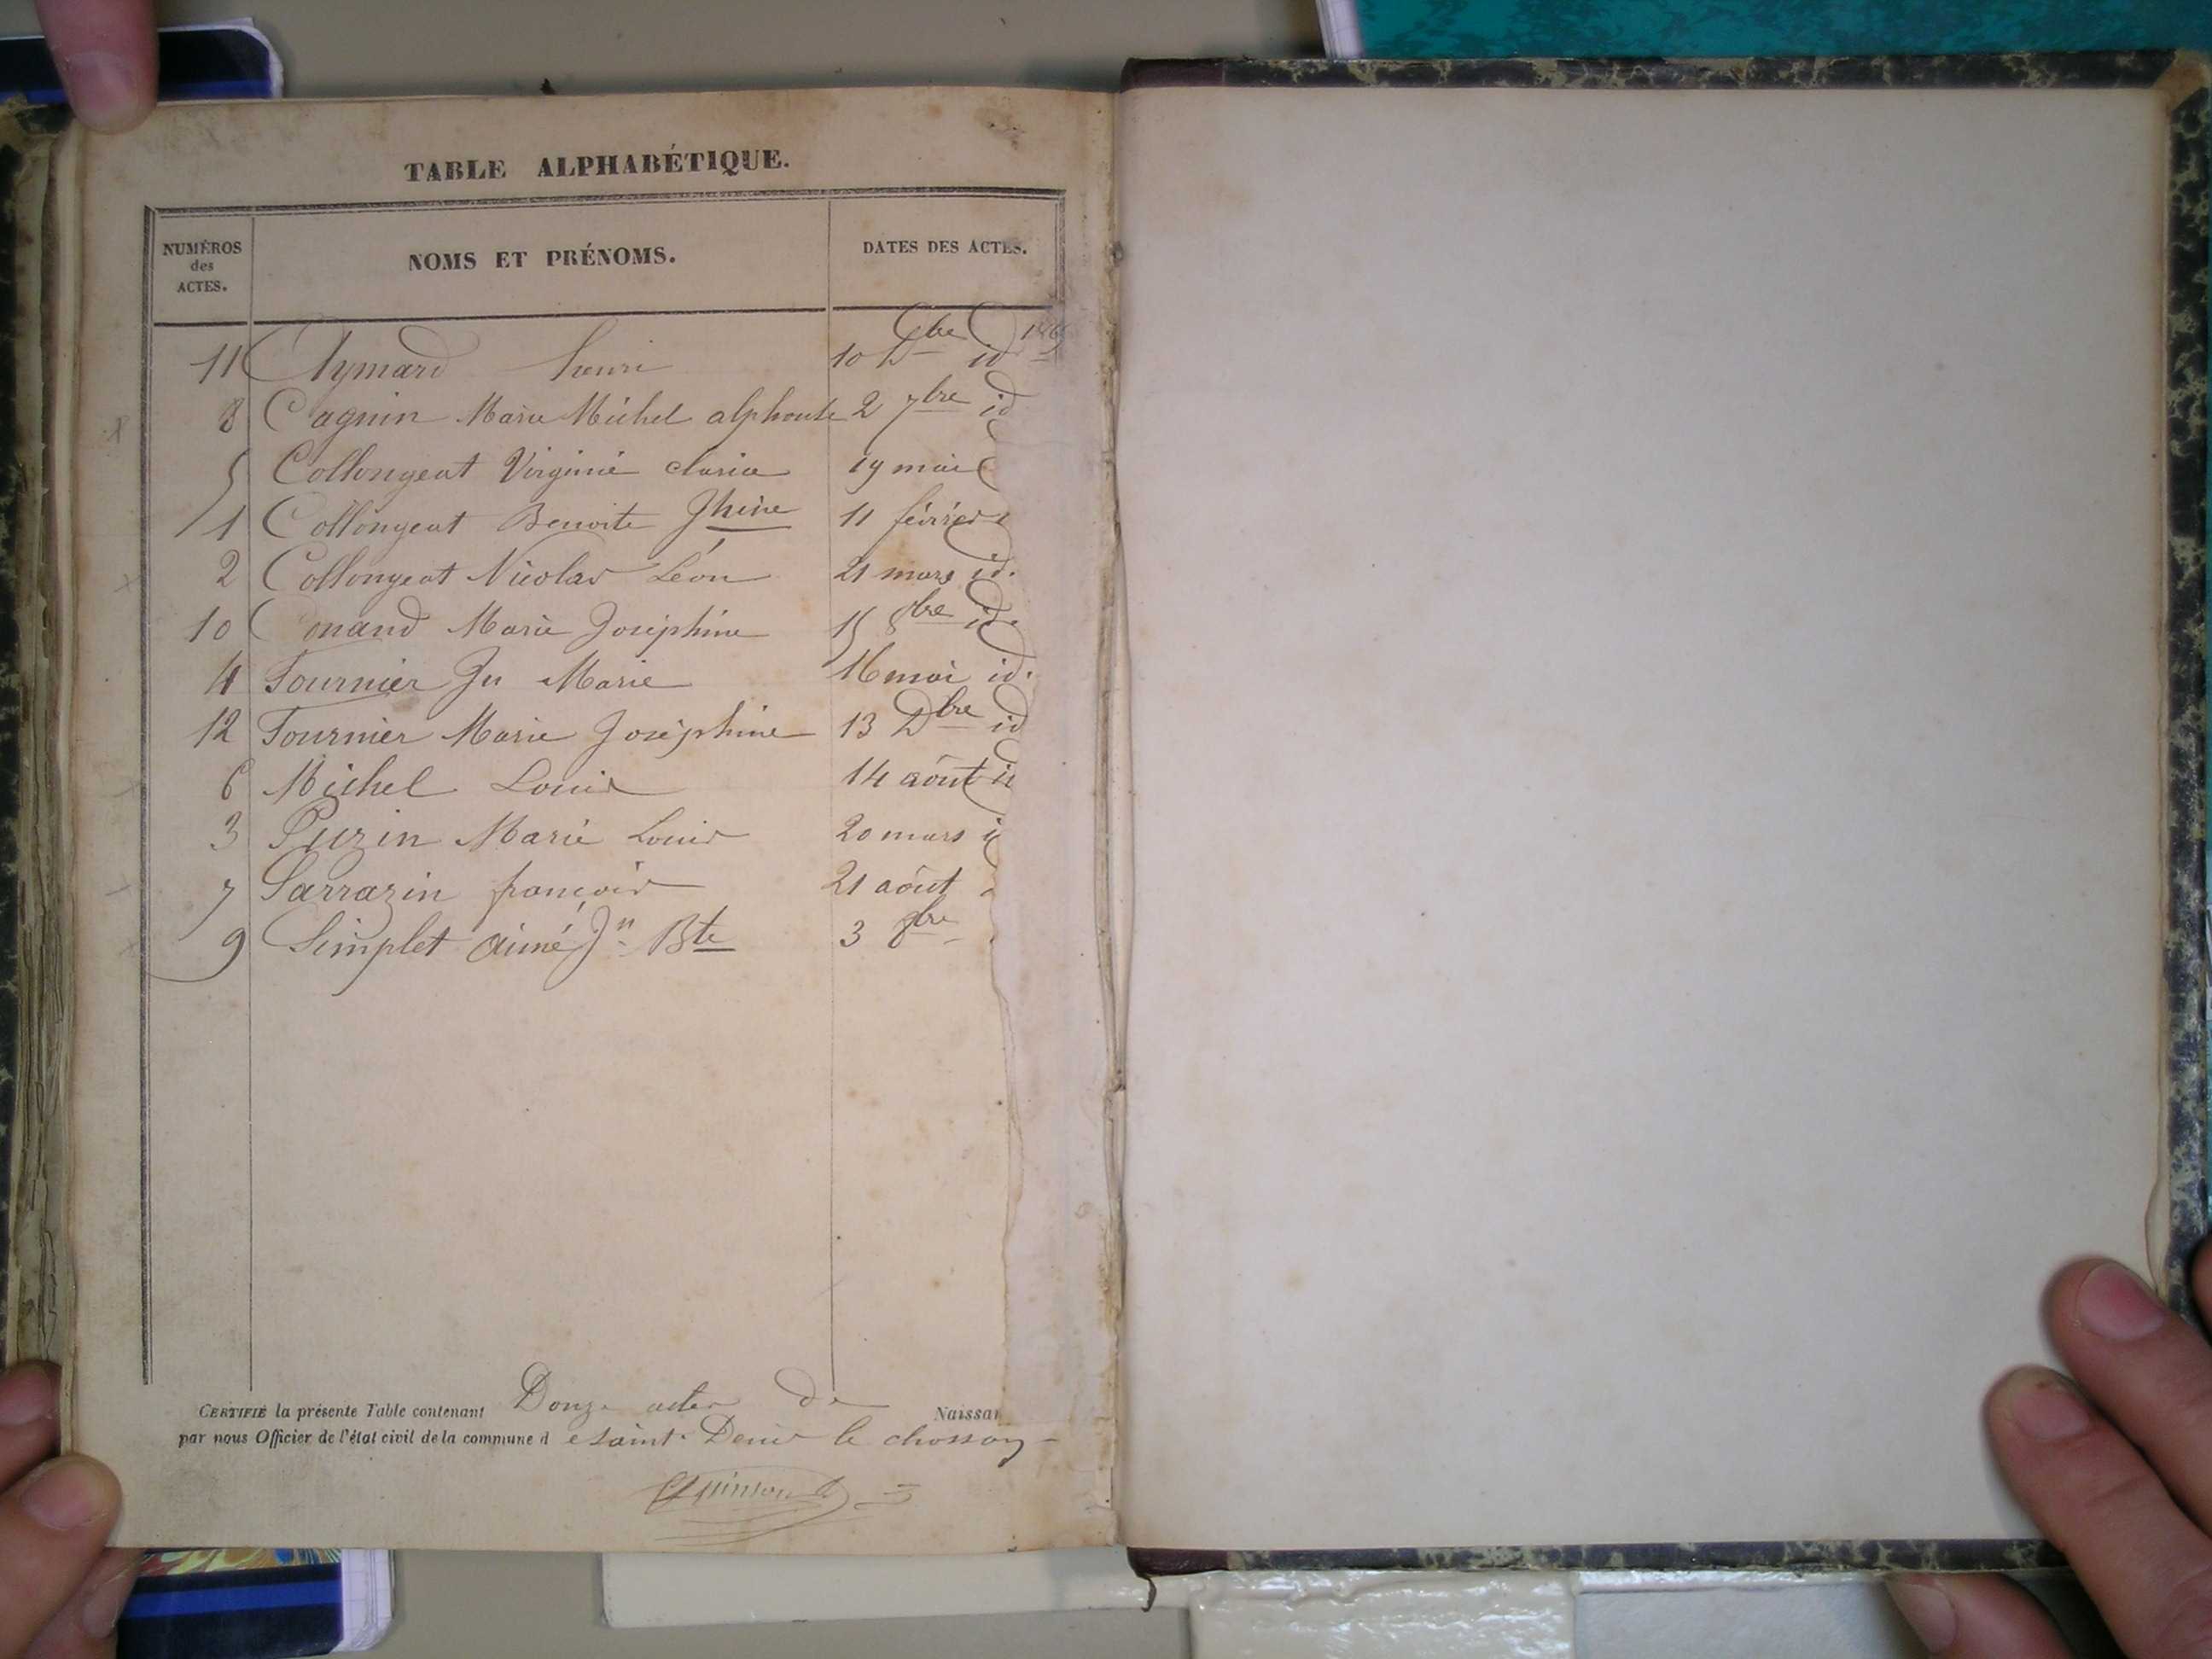 TABLE ALPHABÉTIQUE.
NUMÉROS des ACTES. NOMS ET PRÉNOMS. DATES DES ACTES.
11 Aymard henri 10 Dbre id
8 Cagnin Marie Michel alphonse 2 7bre id
5 Collongeat Virginie clarice 19 mai
1 Collongeat Benoite Jhine 11 février
2 Collongeat Nicolas Léon 21 mars id.
10 Conand Marie Joséphine 15 8bre id.
4 Fournier Jn Marie 16 mai id.
12 Fournier Marie Joséphine 13 Dbre id
6 Michel Louis 14 août id
3 Puzin Marie Louis 20 mars
7 Sarrazin françois 21 août
9 Simplet Aimé Jn Bte 3 8bre
CERTIFIÉ la présente Table contenant Douze actes de Naissan
par nous Officier de l'état civil de la commune de Saint Denis le chosson